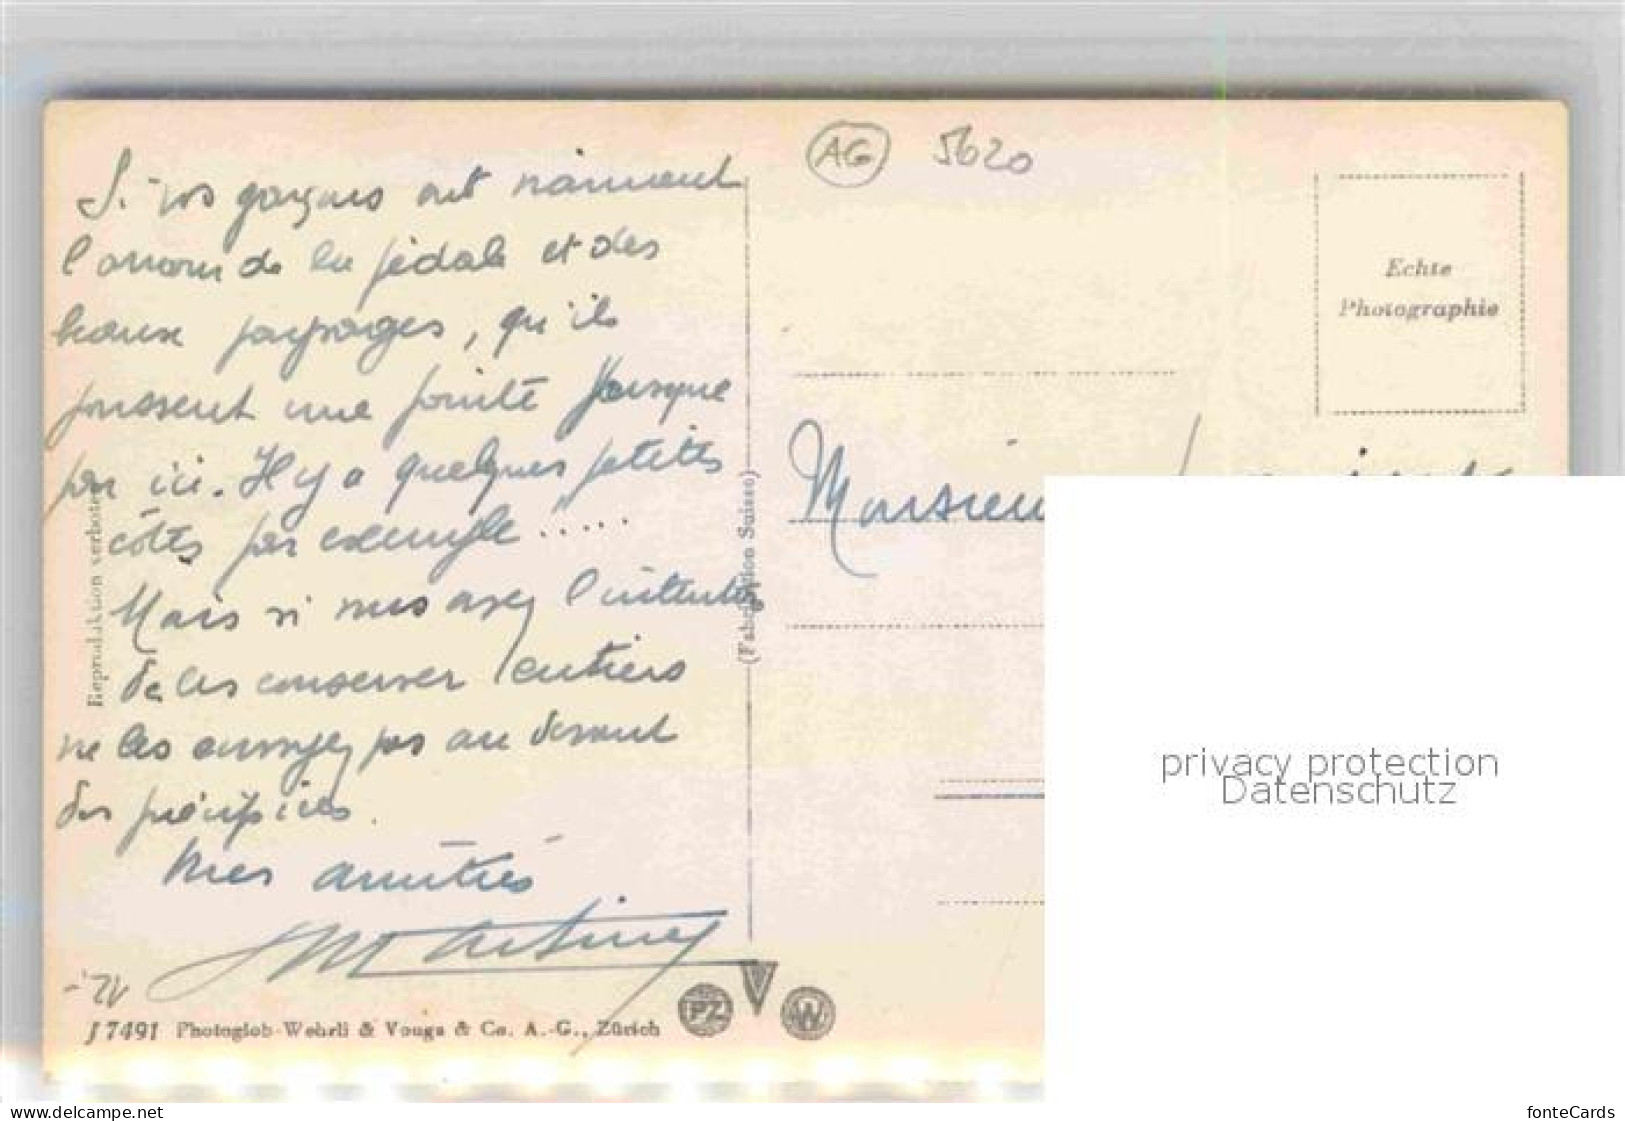 AG 5620
Si vos garçons ont vraiment
l'amour de la pédale et des
beaux paysages, qu'ils
poussent une pointe jusque
par ici. Il y a quelques petites
côtes par exemple .....
Mais si vous avez l'intention
de les conserver entiers
ne les envoyez pas au devant
des précipices.
Mes amitiés
J 7491 Photoglob-Wehrli & Vouga & Co. A.-G., Zürich
PZ V W
Reproduktion verboten
(Fabrication Suisse)
Echte
Photographie
Monsieur
privacy protection
Datenschutz
www.delcampe.net
fonteCards